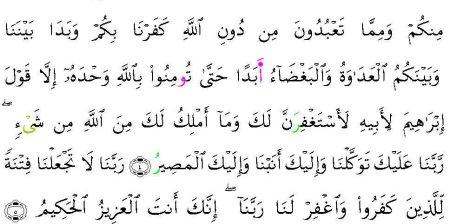 مِنكُمْ وَمِمَّا تَعْبُدُونَ مِن دُونِ ٱللَّهِ كَفَرْنَا بِكُمْ وَبَدَا بَيْنَنَا
وَبَيْنَكُمُ ٱلْعَدَٰوَةُ وَٱلْبَغْضَآءُ أَبَدًا حَتَّىٰ تُومِنُوا۟ بِٱللَّهِ وَحْدَهُۥٓ إِلَّا قَوْلَ
إِبْرَٰهِيمَ لِأَبِيهِ لَأَسْتَغْفِرَنَّ لَكَ وَمَآ أَمْلِكُ لَكَ مِنَ ٱللَّهِ مِن شَىْءٍ ۖ
رَّبَّنَا عَلَيْكَ تَوَكَّلْنَا وَإِلَيْكَ أَنَبْنَا وَإِلَيْكَ ٱلْمَصِيرُ ٤ رَبَّنَا لَا تَجْعَلْنَا فِتْنَةً
لِّلَّذِينَ كَفَرُوا۟ وَٱغْفِرْ لَنَا رَبَّنَآ ۖ إِنَّكَ أَنتَ ٱلْعَزِيزُ ٱلْحَكِيمُ ٥